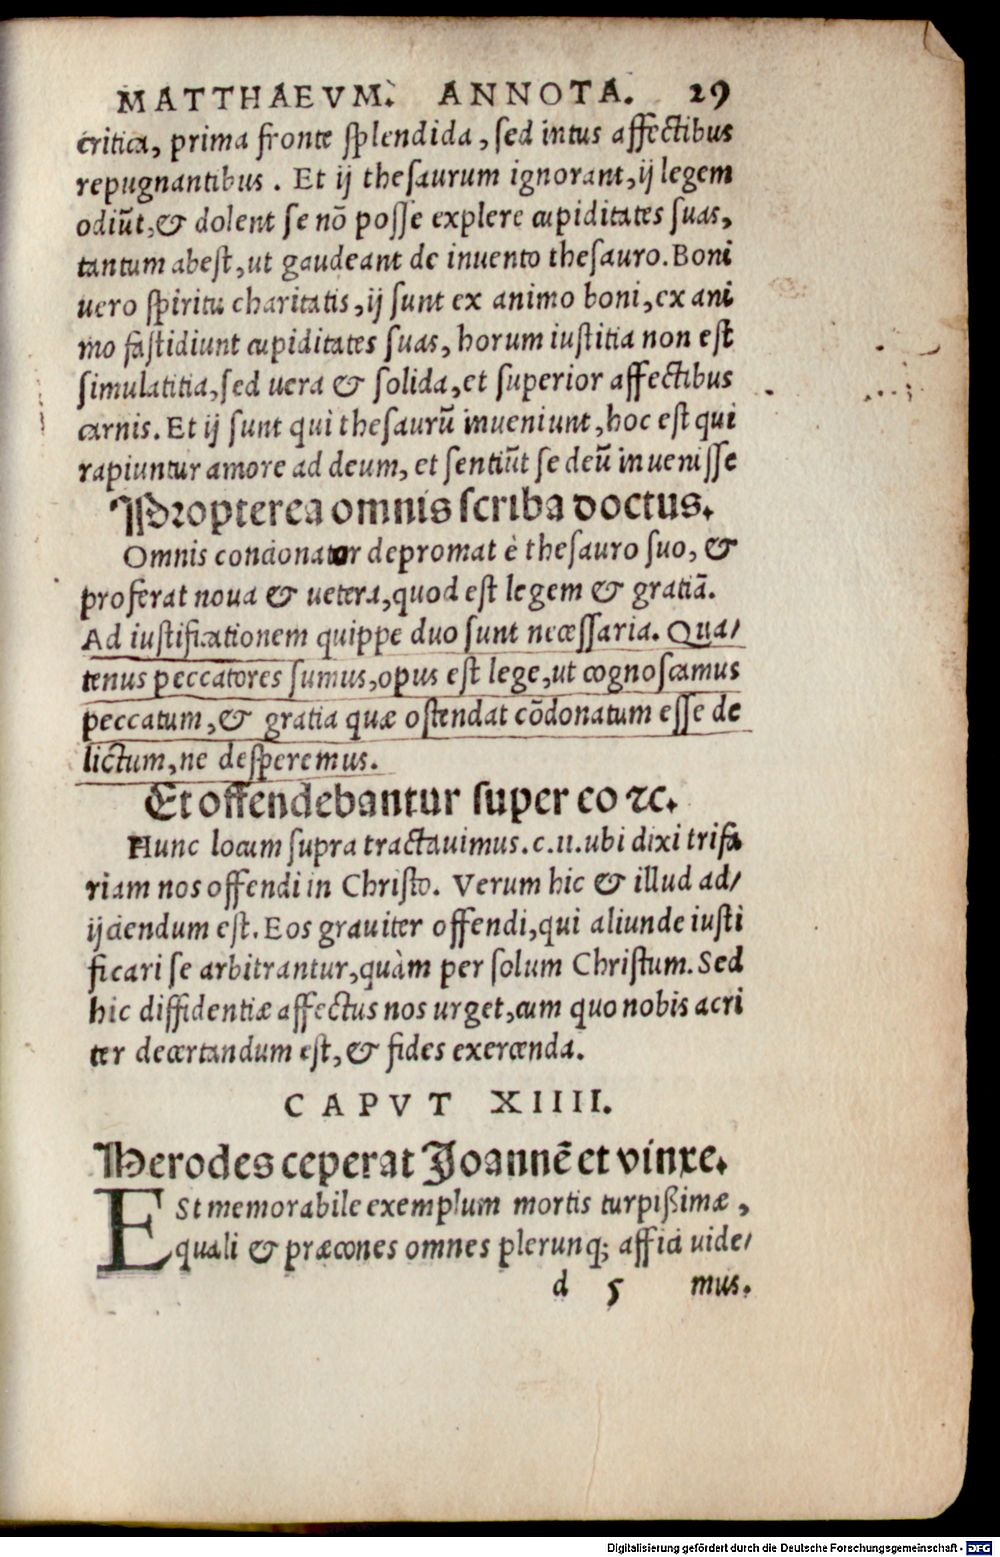 MATTHAEVM. ANNOTA. 29
critica, prima fronte splendida, sed intus affectibus
repugnantibus. Et ij thesaurum ignorant, ij legem
odiūt, & dolent se nō posse explere cupiditates suas,
tantum abest, ut gaudeant de invento thesauro. Boni
uero spiritu charitatis, ij sunt ex animo boni, ex ani
mo fastidiunt cupiditates suas, horum iustitia non est
simulatitia, sed uera & solida, et superior affectibus
carnis. Et ij sunt qui thesaurū inueniunt, hoc est qui
rapiuntur amore ad deum, et sentiūt se deū inuenisse
Propterea omnis scriba doctus.
Omnis concionator depromat è thesauro suo, &
proferat noua & uetera, quod est legem & gratiā.
Ad iustificationem quippe duo sunt necessaria. Qua/
tenus peccatores sumus, opus est lege, ut cognoscamus
peccatum, & gratia quæ ostendat cōdonatum esse de
lictum, ne desperemus.
Et offendebantur super eo ⁊c.
Hunc locum supra tractauimus. c. 11. ubi dixi trifa
riam nos offendi in Christo. Verum hic & illud ad/
ijciendum est. Eos grauiter offendi, qui aliunde iusti
ficari se arbitrantur, quàm per solum Christum. Sed
hic diffidentiæ affectus nos urget, cum quo nobis acri
ter decertandum est, & fides exercenda.
CAPVT XIIII.
Herodes ceperat Joannē et vinxe.
ESt memorabile exemplum mortis turpißimæ,
quali & præcones omnes plerunq; affici uide/
d 5 mus.
Digitalisierung gefördert durch die Deutsche Forschungsgemeinschaft - DFG